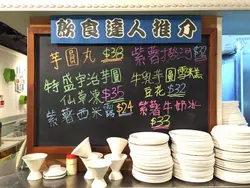 飲食達人推介
芋圓丸 $38
紫薯撈河 $32
特盛宇治芋圓
仙草凍 $35
牛乳芋圓雪糕
豆花 $32
紫薯西米露 $24
紫薯牛奶冰
$33